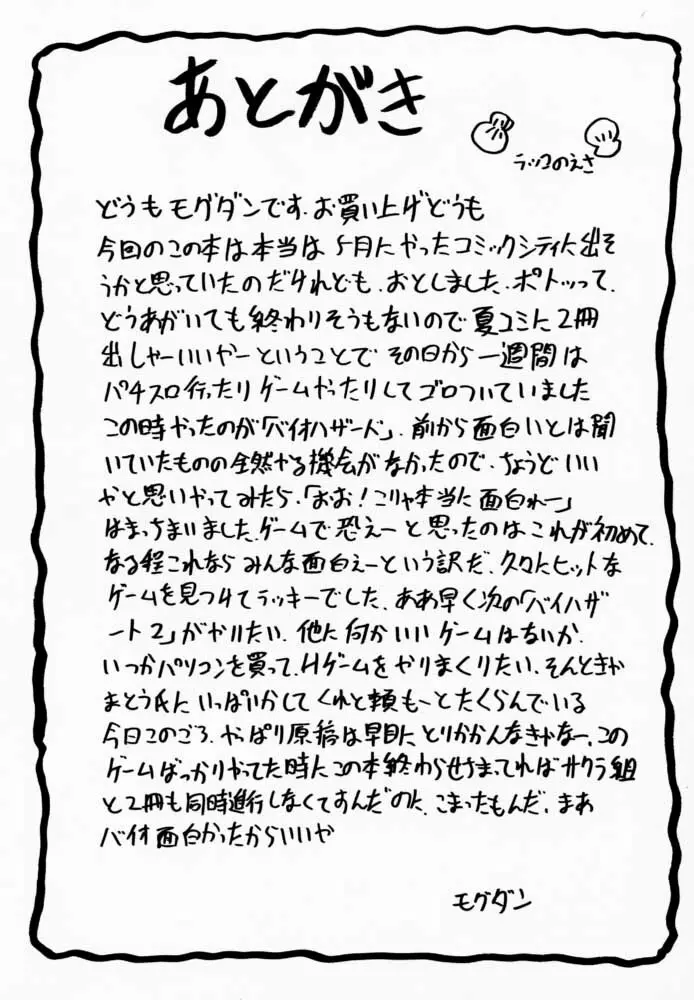 あとがき
ラッコのえさ
どうもモグダンです。お買い上げどうも
今回のこの本は本当は5月にやったコミックシティに出そ
うかと思っていたのだけれども、おとしました。ポトッって、
どうあがいても終わりそうもないので夏コミに2冊
出しゃーいいやーということでその日から一週間は
パチスロ行ったりゲームやったりしてゴロついていました
この時やったのが「バイオハザード」、前から面白いとは聞
いていたものの全然やる機会がなかったので、ちょうどいい
やと思いやってみたら、「おお!こりゃ本当に面白れー」
はまっちまいました。ゲームで恐えーと思ったのはこれが初めて、
なる程これならみんな面白えーという訳だ、久々にヒットな
ゲームを見つけてラッキーでした、ああ早く次の「バイハザ
ート2」がやりたい、他に何かいいゲームはないか、
いつかパソコンを買って、Hゲームをやりまくりたい、そんときゃ
まとう氏にいっぱいかしてくれと頼もーとたくらんでいる
今日このごろ、やっぱり原稿は早目にとりかかんなきゃなー、この
ゲームばっかりやってた時にこの本終わらせちまってればサクラ組
と2冊も同時進行しなくてすんだのに、こまったもんだ、まあ
バイオ面白かったからいいや
モグダン